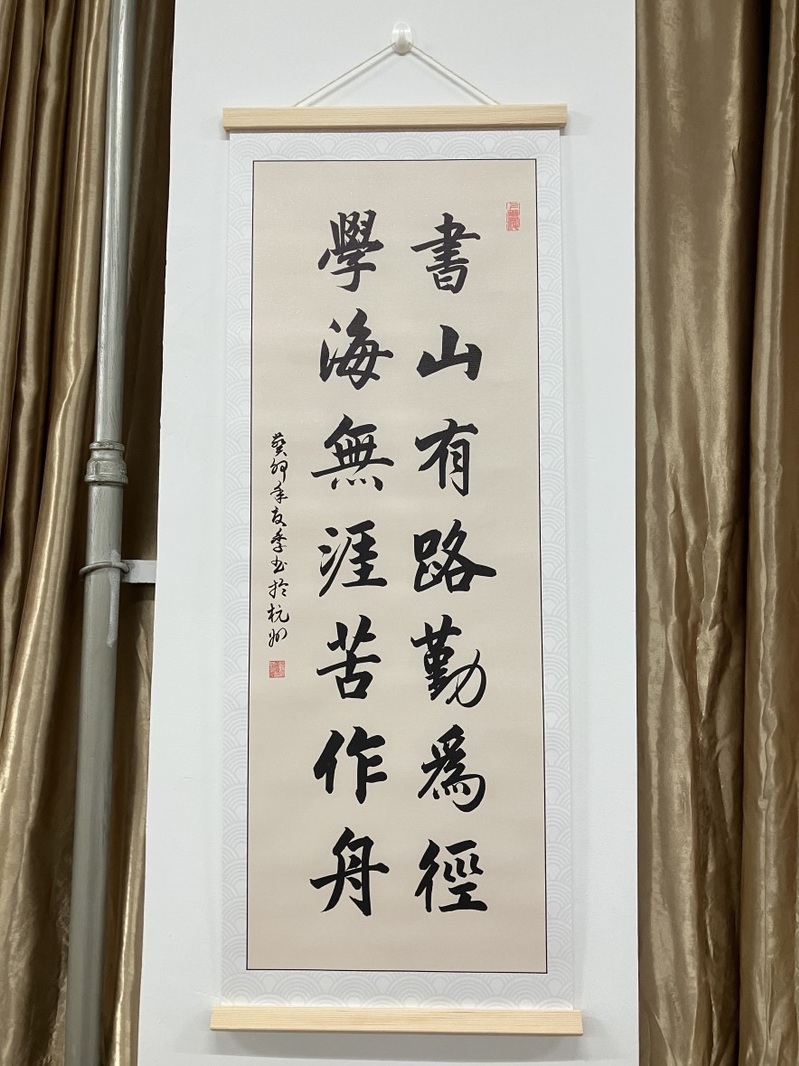 書山有路勤爲徑
學海無涯苦作舟
癸卯年夏季书於杭州